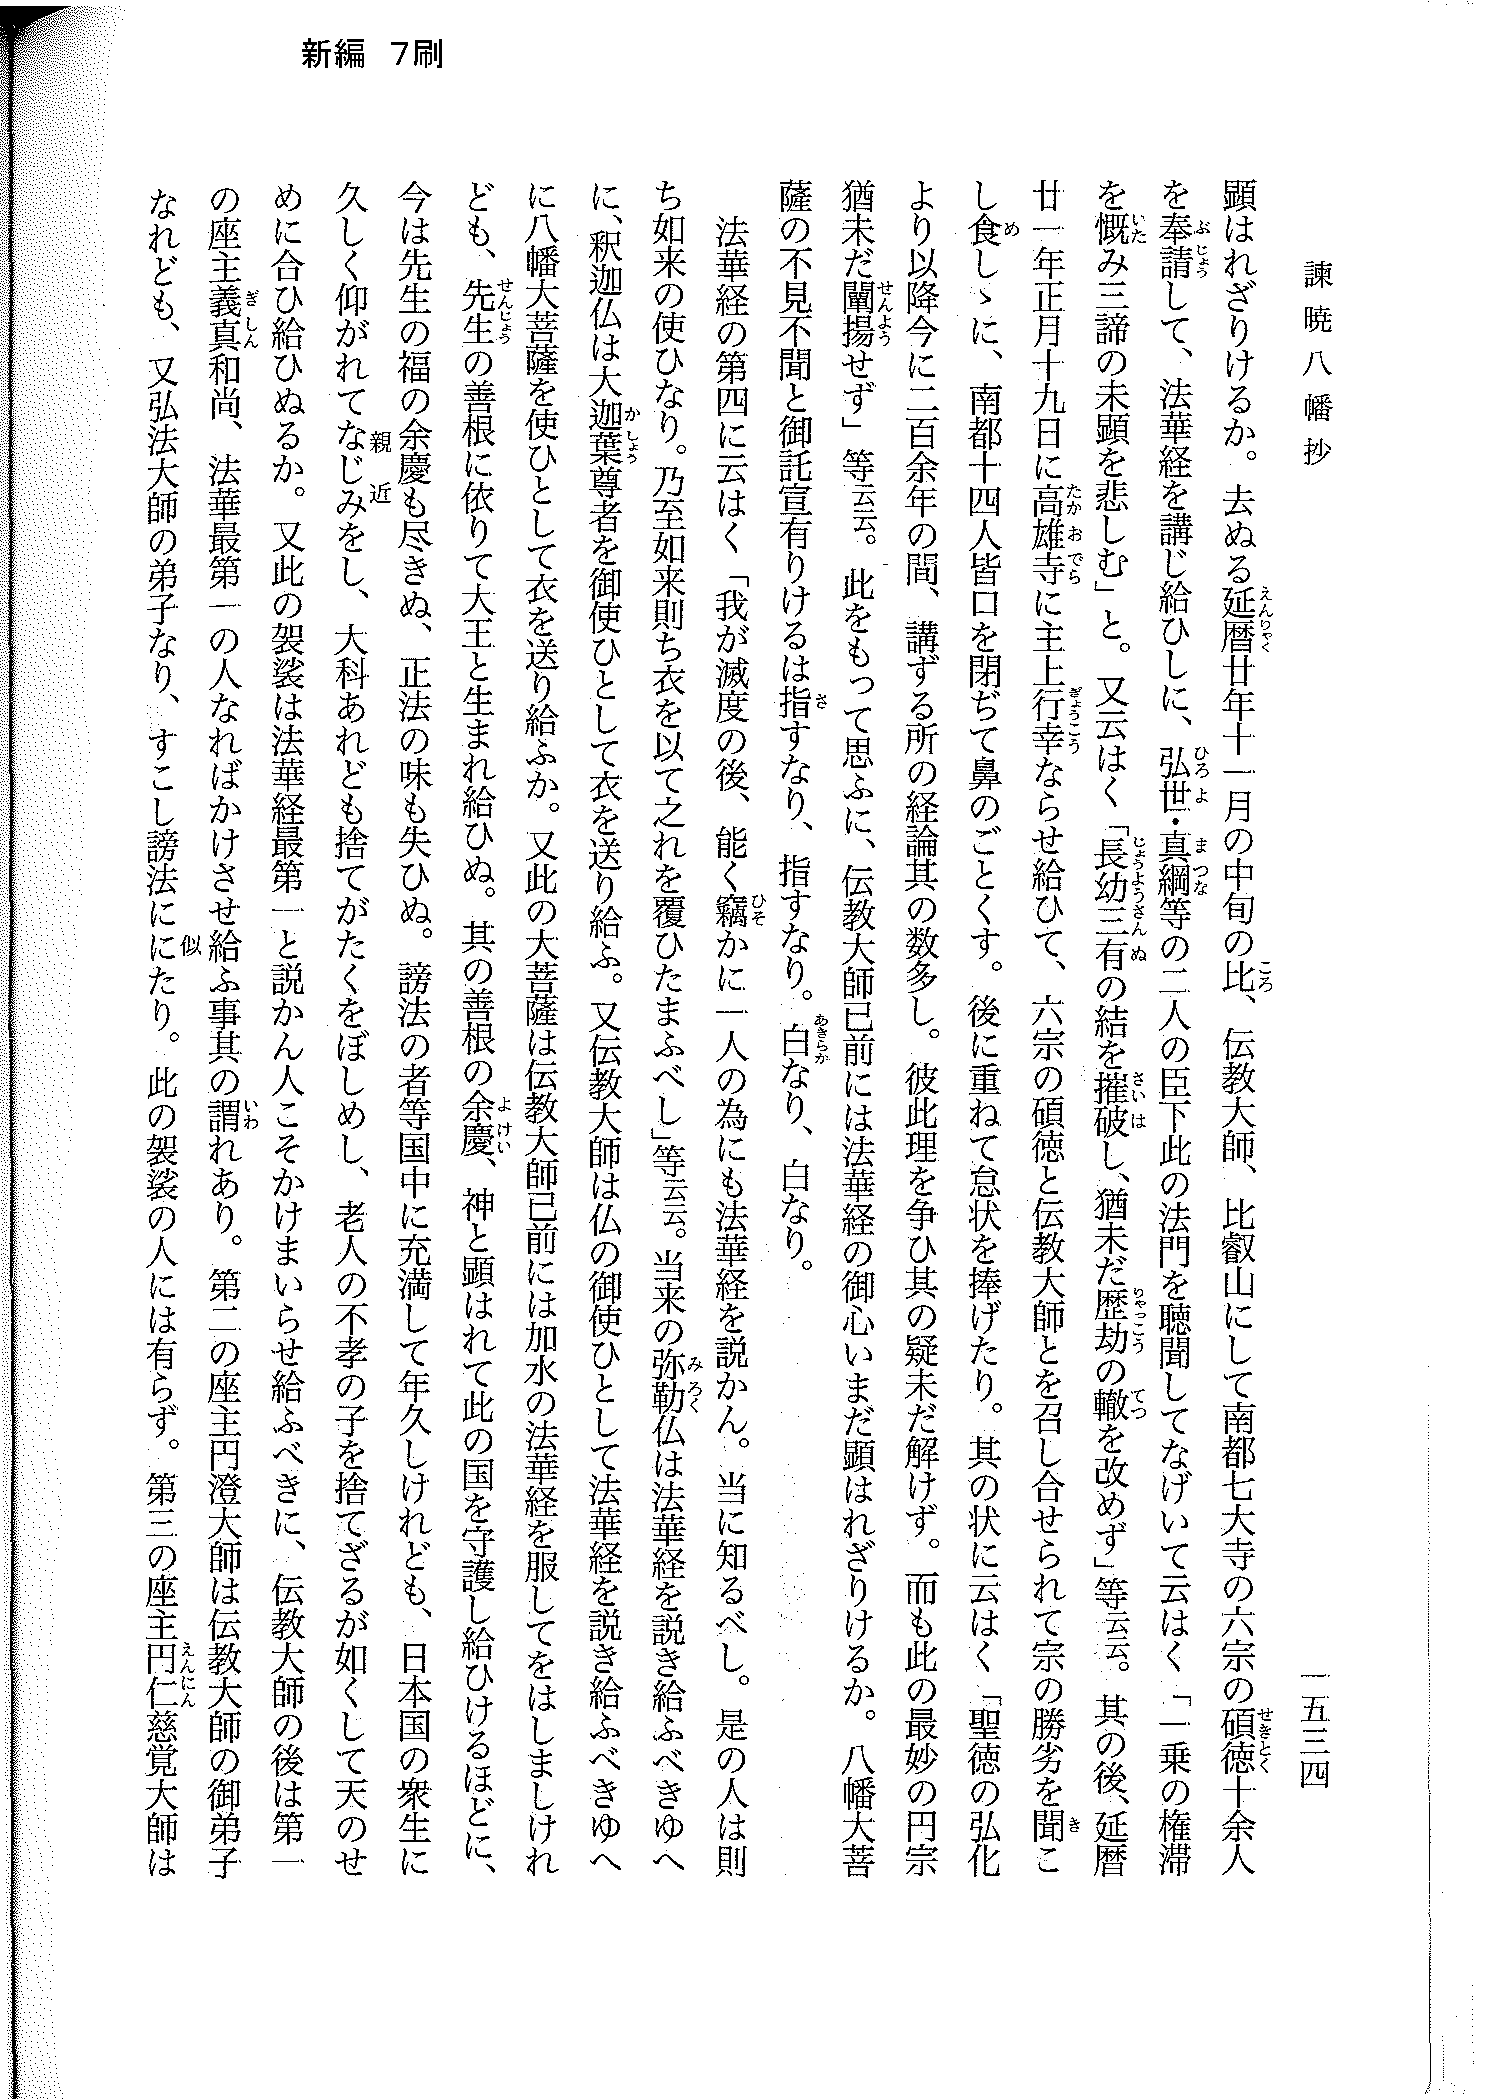 新編 7刷
諫暁八幡抄
一五三四
顕はれざりけるか。去ぬる延暦廿年十一月の中旬の比、伝教大師、比叡山にして南都七大寺の六宗の碩徳十余人
を奉請して、法華経を講じ給ひしに、弘世・真綱等の二人の臣下此の法門を聴聞してなげいて云はく「一乗の権滞
を慨み三諦の未顕を悲しむ」と。又云はく「長幼三有の結を摧破し、猶未だ歴劫の轍を改めず」等云云。其の後、延暦
廿一年正月十九日に高雄寺に主上行幸ならせ給ひて、六宗の碩徳と伝教大師とを召し合せられて宗の勝劣を聞こ
し食しゝに、南都十四人皆口を閉ぢて鼻のごとくす。後に重ねて怠状を捧げたり。其の状に云はく「聖徳の弘化
より以降今に二百余年の間、講ずる所の経論其の数多し。彼此理を争ひ其の疑未だ解けず。而も此の最妙の円宗
猶未だ闡揚せず」等云云。此をもって思ふに、伝教大師已前には法華経の御心いまだ顕はれざりけるか。八幡大菩
薩の不見不聞と御託宣有りけるは指すなり、指すなり。白なり、白なり。
法華経の第四に云はく「我が滅度の後、能く竊かに一人の為にも法華経を説かん。当に知るべし。是の人は則
ち如来の使ひなり。乃至如来則ち衣を以て之れを覆ひたまふべし」等云云。当来の弥勒仏は法華経を説き給ふべきゆへ
に、釈迦仏は大迦葉尊者を御使ひとして衣を送り給ふ。又伝教大師は仏の御使ひとして法華経を説き給ふべきゆへ
に八幡大菩薩を使ひとして衣を送り給ふか。又此の大菩薩は伝教大師已前には加水の法華経を服してをはしましけれ
ども、先生の善根に依りて大王と生まれ給ひぬ。其の善根の余慶、神と顕はれて此の国を守護し給ひけるほどに、
今は先生の福の余慶も尽きぬ、正法の味も失ひぬ。謗法の者等国中に充満して年久しけれども、日本国の衆生に
久しく仰がれてなじみをし、大科あれども捨てがたくをぼしめし、老人の不孝の子を捨てざるが如くして天のせ
めに合ひ給ひぬるか。又此の袈裟は法華経最第一と説かん人こそかけまいらせ給ふべきに、伝教大師の後は第一
の座主義真和尚、法華最第一の人なればかけさせ給ふ事其の謂れあり。第二の座主円澄大師は伝教大師の御弟子
なれども、又弘法大師の弟子なり、すこし謗法ににたり。此の袈裟の人には有らず。第三の座主円仁慈覚大師は